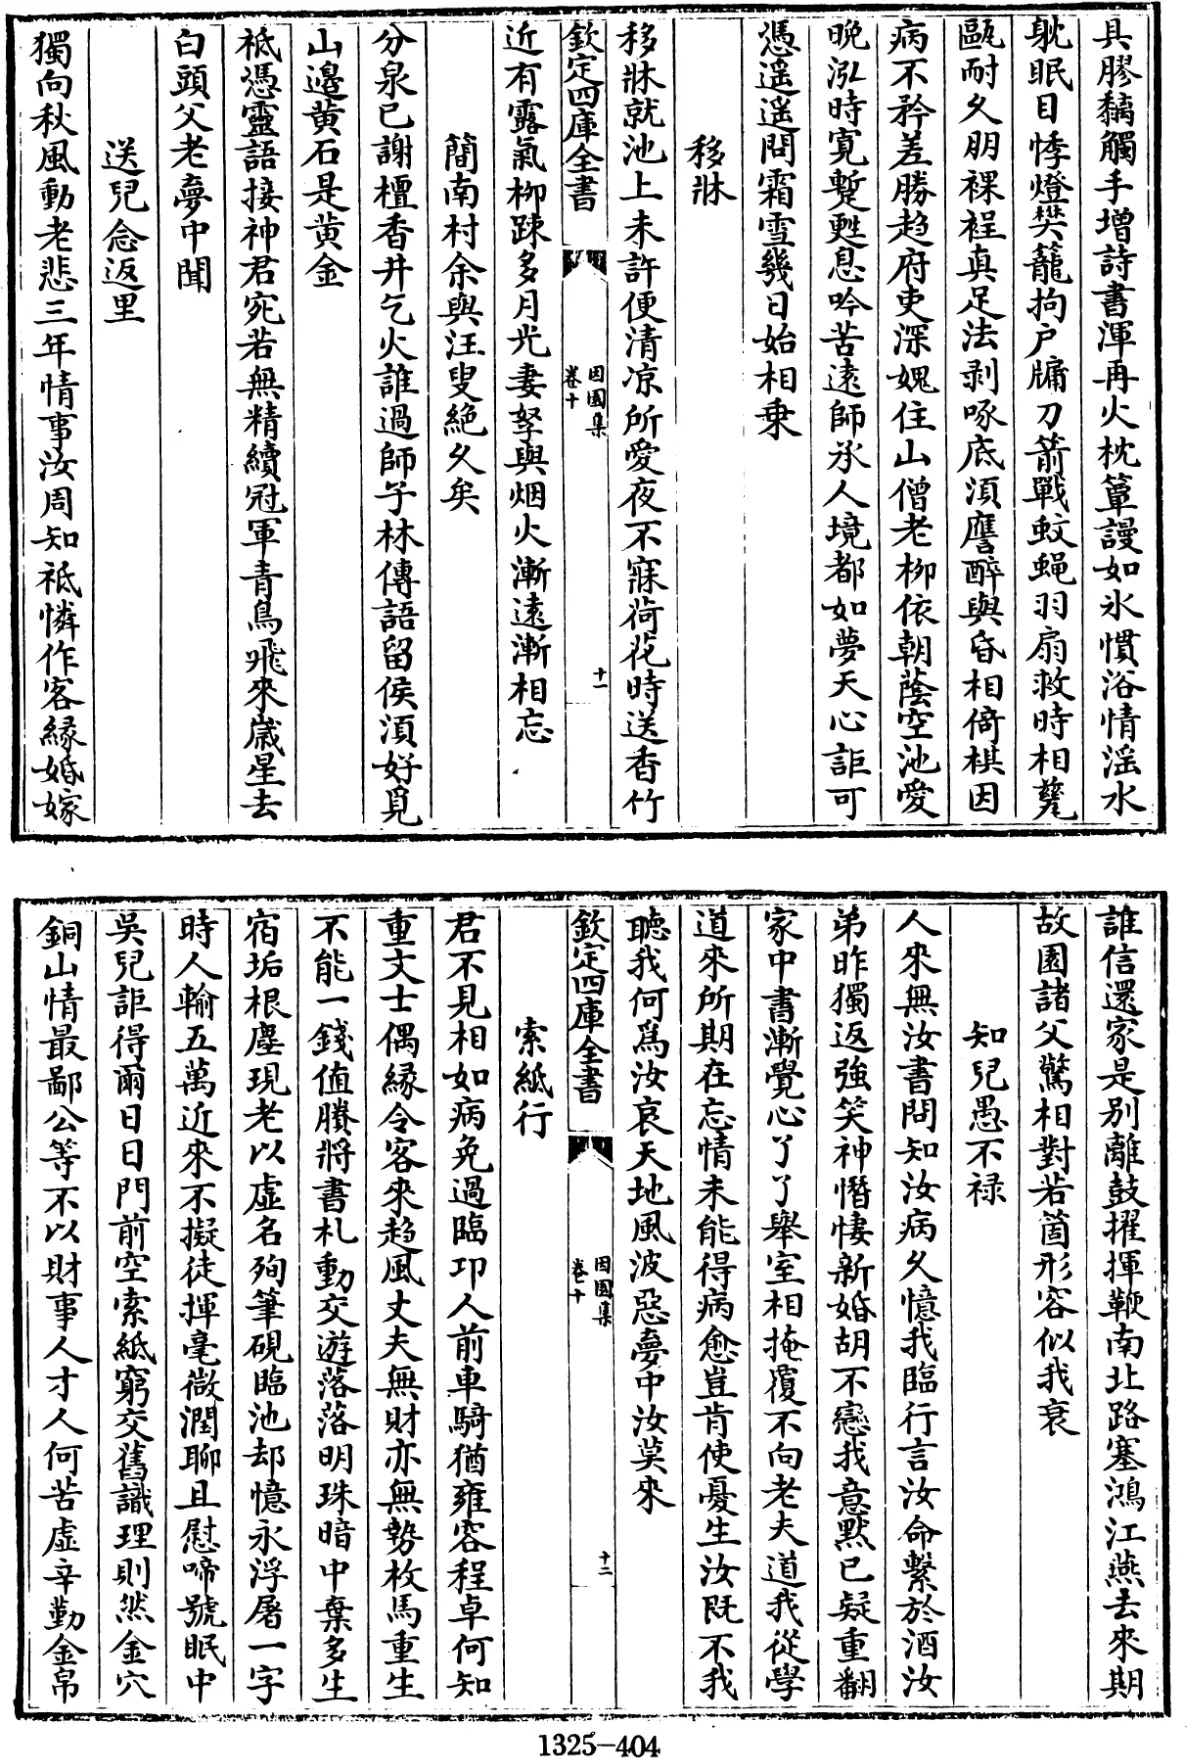 具膠黐觸手增詩書渾再火枕簟謾如氷慣浴情滛水
躭眠目悸燈樊籠拘户牖刀箭戰蚊蝿羽扇救時相甓
甌耐久朋裸裎真足法剥啄底湏譍醉與昏相倚棋因
病不矜差勝趋府吏深媿住山僧老柳依朝蔭空池愛
晩泓時寛蹔甦息吟苦遠師氶人境都如夢天心詎可
憑遥遥問霜雪幾日始相乗
移牀
移牀就池上未許便清凉所愛夜不寐荷花時送香竹
欽定四庫全書
因園集
卷十
十一
近有露氣柳踈多月光妻孥與烟火漸遠漸相忘
簡南村余與汪叟絶久矣
分泉已謝檀香井乞火誰過師子林傳語留侯湏好覓
山邉黄石是黄金
祗憑靈語接神君宛若無精續冠軍青鳥飛來歲星去
白頭父老夢中聞
送兒念返里
獨向秋風動老悲三年情事汝周知祗憐作客緣婚嫁
誰信還家是别離鼓擢揮鞭南北路塞鴻江燕去來期
故園諸父驚相對若箇形容似我衰
知兒愚不禄
人來無汝書問知汝病久憶我臨行言汝命繫於酒汝
弟昨獨返強笑神慘悽新婚胡不戀我意黙已疑重翻
家中書漸覺心了了舉室相掩覆不向老夫道我從學
道來所期在忘情未能得病愈豈肯使憂生汝既不我
聴我何爲汝哀天地風波惡夢中汝莫來
欽定四庫全書
因園集
卷十
十二
索紙行
君不見相如病免過臨卭人前車騎猶雍容程卓何知
重文士偶緣令客來趋風丈夫無財亦無勢枚馬重生
不能一錢值賸將書札動交遊落落明珠暗中棄多生
宿垢根塵現老以虚名殉筆硯臨池却憶永浮屠一字
時人輸五萬近來不擬徒揮毫微潤聊且慰啼號眠中
吳兒詎得爾日日門前空索紙窮交舊識理則然金穴
銅山情最鄙公等不以財事人才人何苦虚辛勤金帛
1325-404